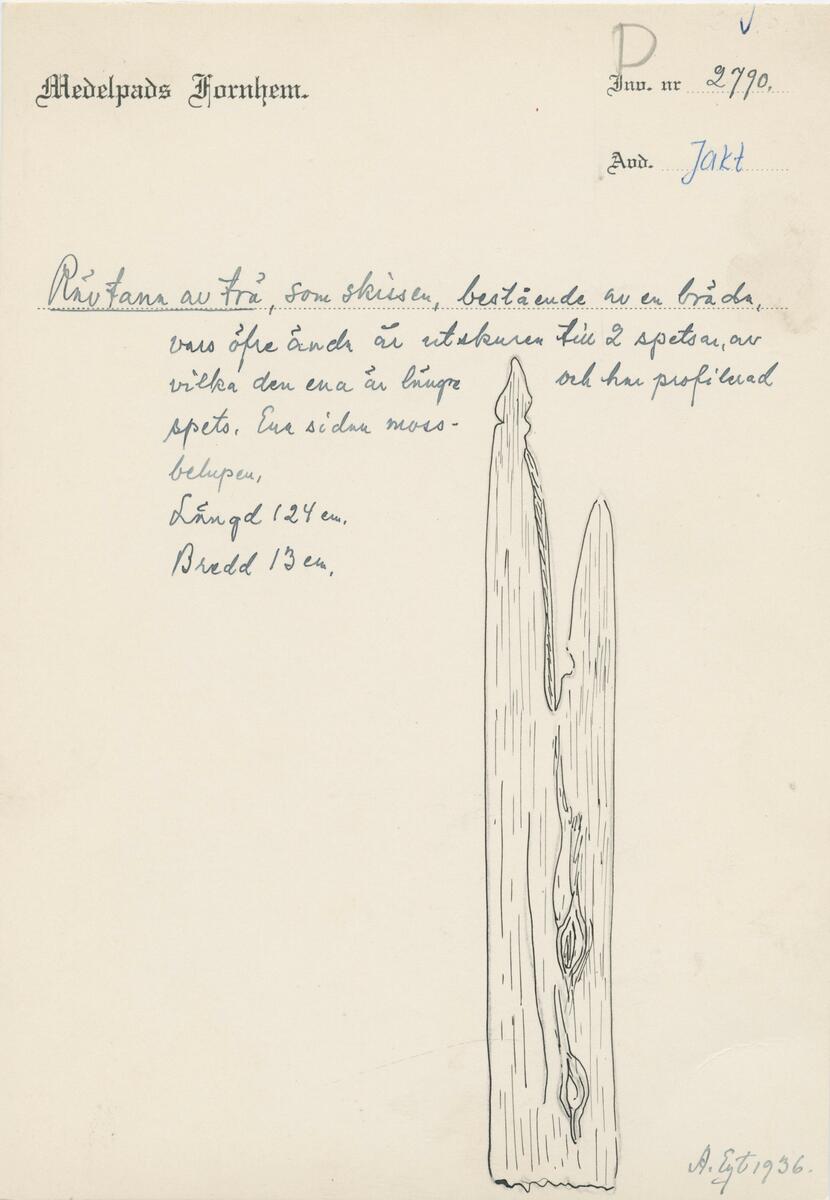 D
Medelpads Fornhem.
Inv. nr 2790.
Avd. Jakt
Rävtana av trä, som skissen, bestående av en bräda,
vars öfre ända är utskuren till 2 spetsar, av
vilka den ena är längre och har profilerad
spets. Ena sidan moss-
belupen,
Längd 124 cm.
Bredd 13 cm.
A. Eyt 1936.